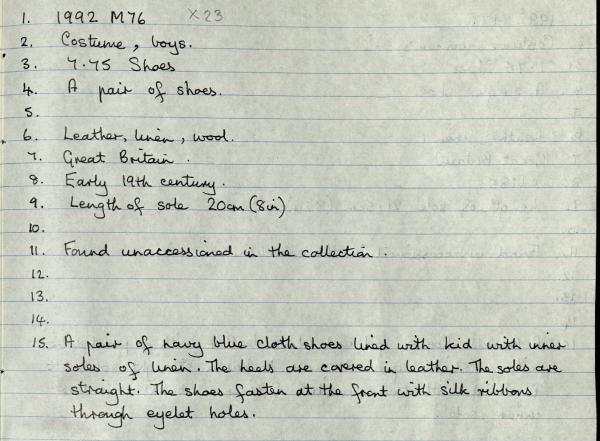 1. 1992 M76 X23
2. Costume, boys.
3. 7.75 Shoes
4. A pair of shoes.
5.
6. Leather, linen, wool.
7. Great Britain.
8. Early 19th century.
9. Length of sole 20cm (8in)
10.
11. Found unaccessioned in the collection.
12.
13.
14.
15. A pair of navy blue cloth shoes lined with kid with inner
soles of linen. The heels are covered in leather. The soles are
straight. The shoes fasten at the front with silk ribbons
through eyelet holes.